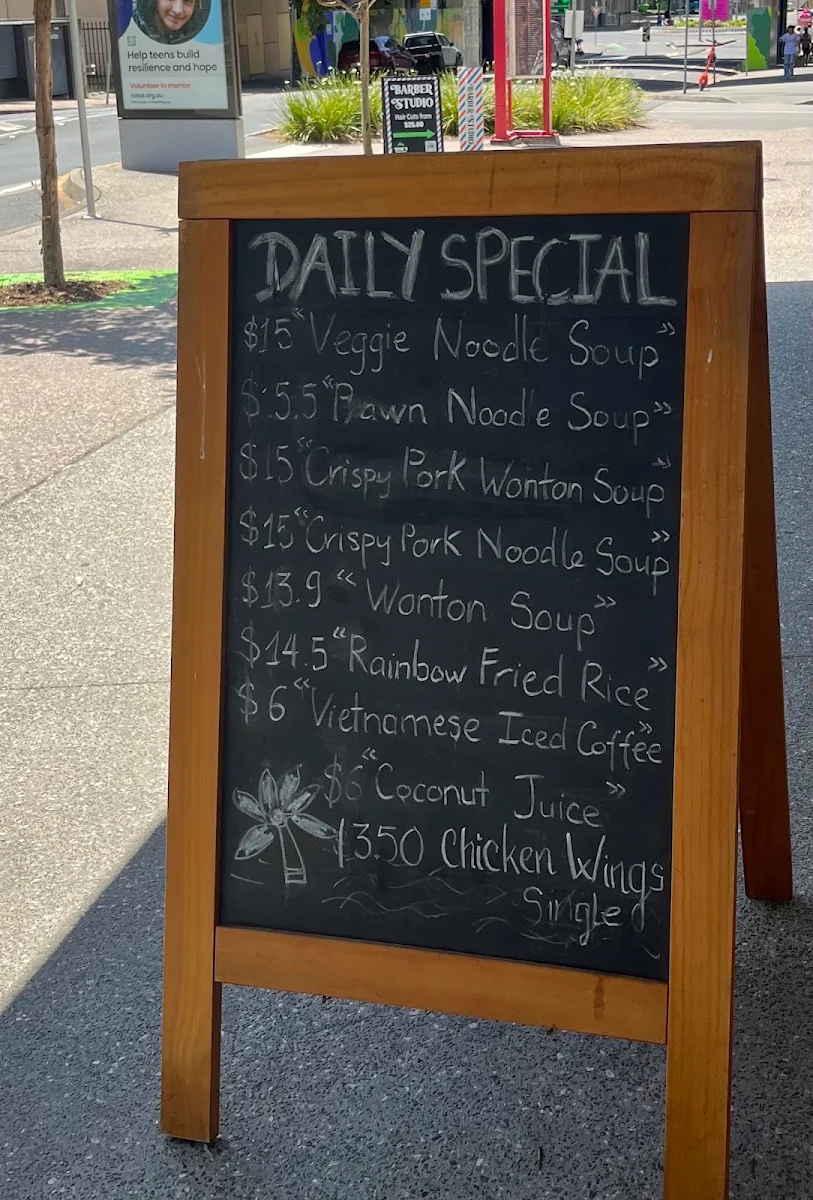 Help teens build
resilience and hope
Volunteer to mentor
raise.org.au
BARBER
STUDIO
Hair Cuts from
$25.00
DAILY SPECIAL
$15 "Veggie Noodle Soup"
$15.5 "Prawn Noodle Soup"
$15 "Crispy Pork Wonton Soup"
$15 "Crispy Pork Noodle Soup"
$13.9 "Wonton Soup"
$14.5 "Rainbow Fried Rice"
$6 "Vietnamese Iced Coffee"
$6 "Coconut Juice"
$3.50 Chicken Wings
Single